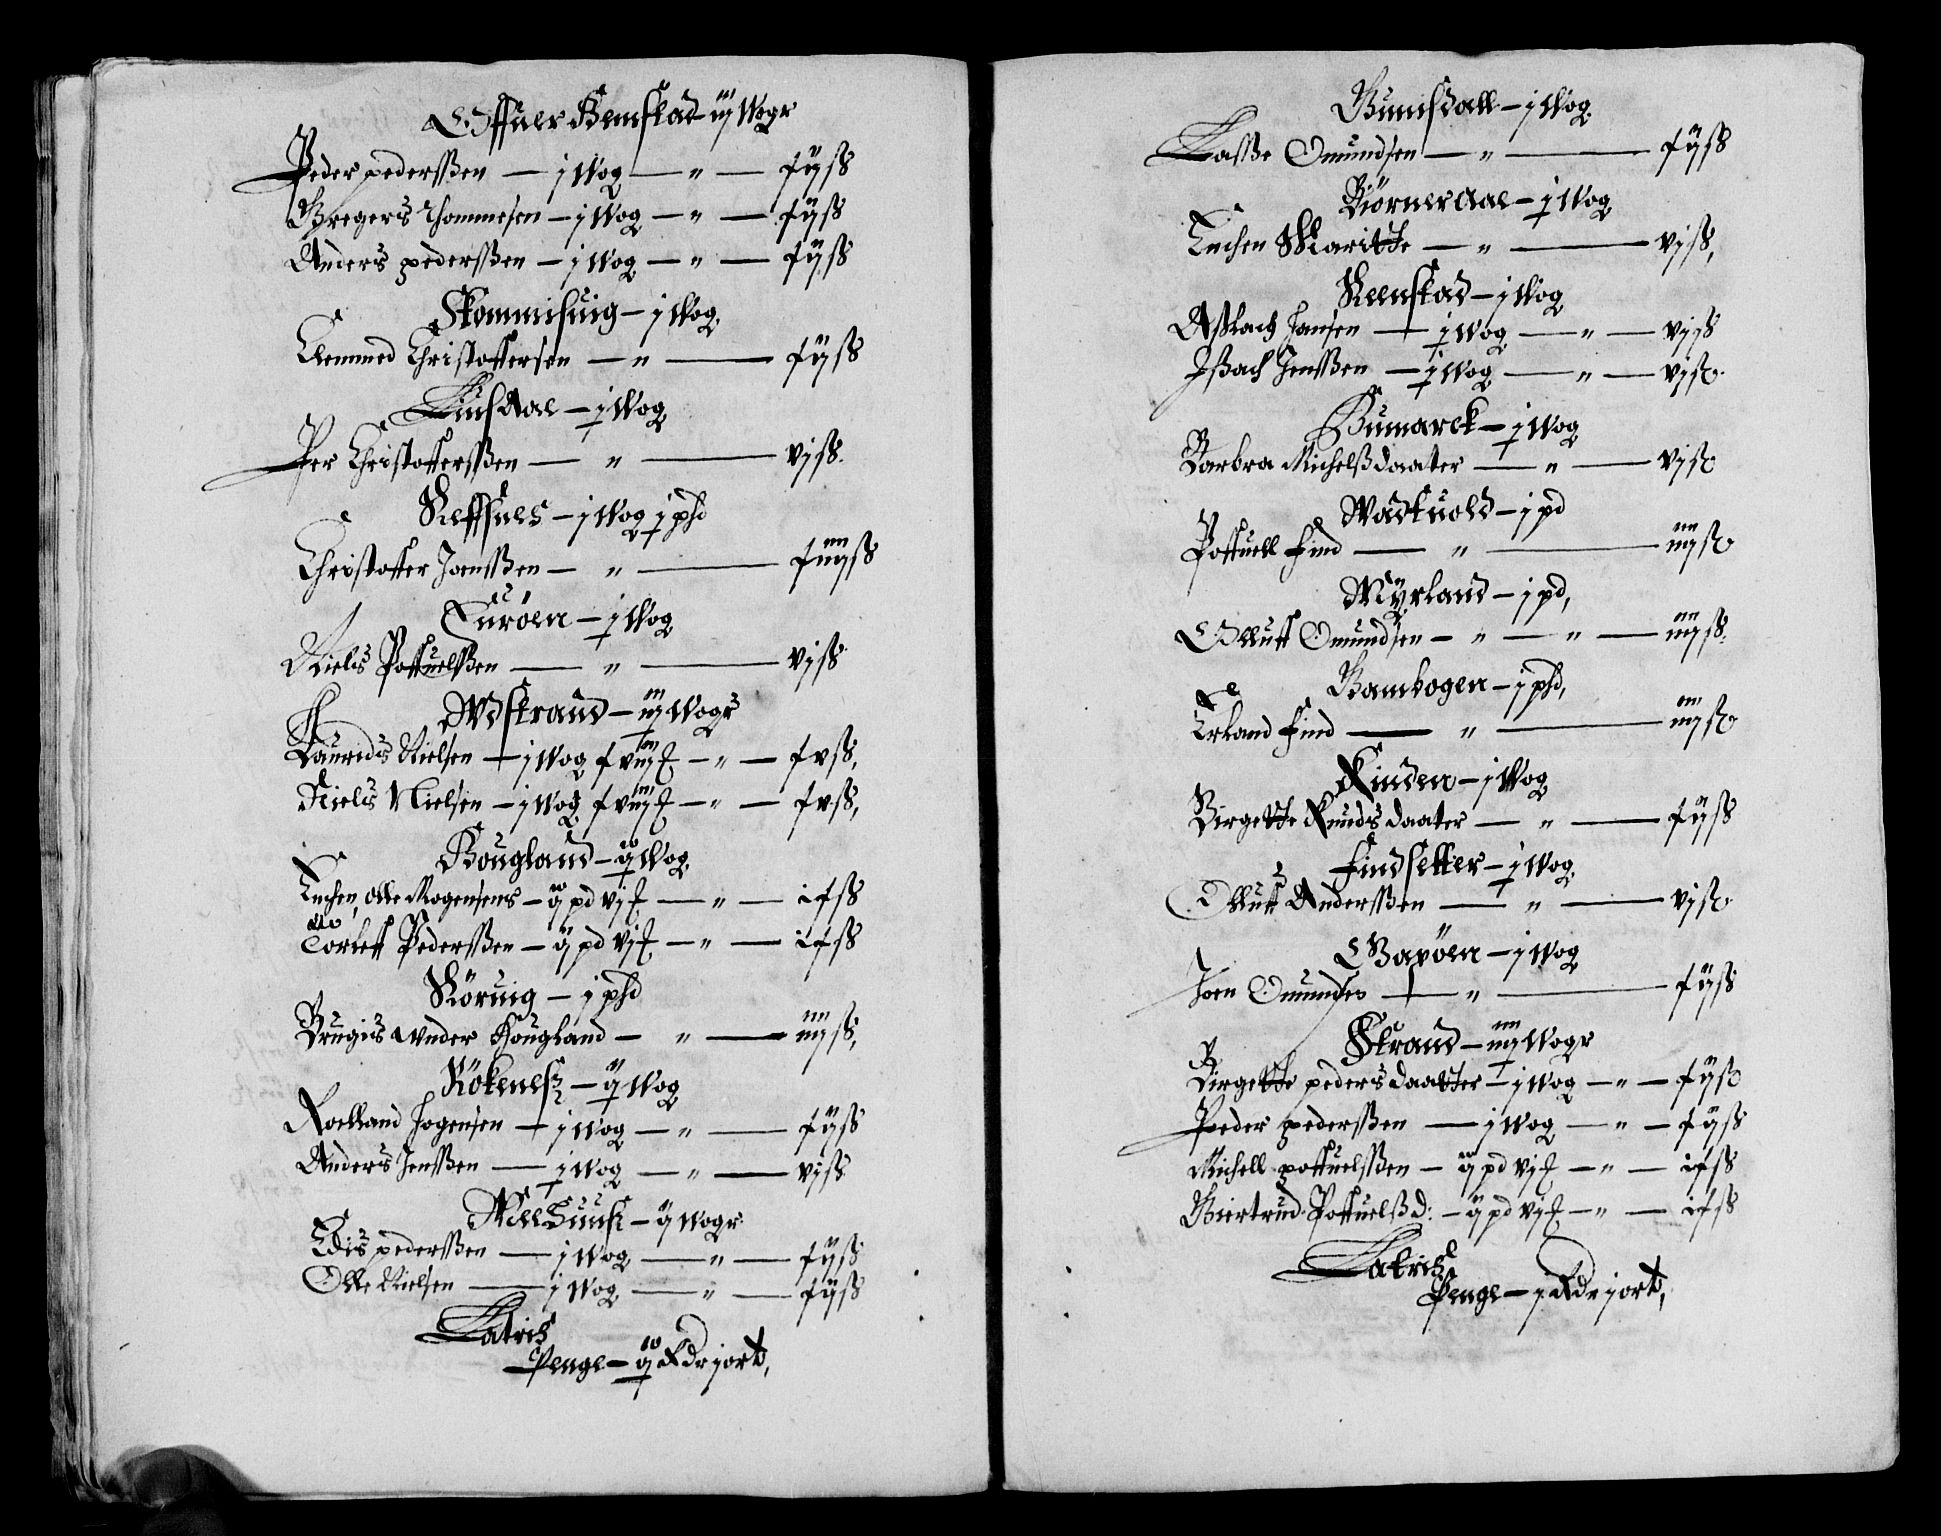 Øffuer Remstad – iij Wogr
Peder pedersßen — j Wog — " — xij ß
Gregers Thommesen – j Wog — " — xij ß
Anders pedersßen – j Wog — " — xij ß
Skommisuig – j Wog
Clemmed Christoffersen — " — xij ß
Liusdall – j Wog
Per Christoffersßen — " — vj ß
Reffsnes – j Wog j phd
Christoffer Joensßen — " — xiiij ß
Turöen – j Wog
Niels Poffuelsßen — " — vj ß
Wdstrand – iij Wogr
Laurids Nielsen — j Wog xviij — " — xv ß
Niels Nielsen – j Wog xviij — " — xv ß
Hougland – ij Wog
Enchen olle Mogensens – ij pd vj — " — ix ß
Torleff Pedersßen – ij pd vj — " — ix ß
Röruig – j phd
Brugis wnder Hougland — " — iiij ß
Kökenes – ij Wog
Roelland Jogensen — j Wog — " — xij ß
Anders Jensßen — j Wog — " — vj ß
– ij Wogr
Edis pedersßen — j Wog — " — xij ß
Olle Nielsen — j Wog — " — xij ß
Latris
Penge – ij Rdr j ort,
Gumisdall – j Wog
Lasße Omundsen — " — xij ß
Biörneraae – j Wog
Enchen Maritte — " — vj ß
Reenstad – j Wog
Aslach Hansen — j Wog — " — vj ß
Ißach Jensßen — j Wog — " — vj ß
Bumarck – j Wog
Barbra Michelßdaater — " — vj ß
Wadkuold – j pd
Poffuell Find — " — iiij ß
Myrland – j pd
Olluff Omundsen – " — " — iiij ß
Bambogen – j phd
Erland Find — " — iiij ß
Kinden – j Wog
Birgette Knuds daater — " — xij ß
Findsetter – j Wog
Olluff Andersßen — " — vj ß
Gaxöen – j Wog
Joen Omundsen — " — xij ß
Strand – iiij Wogr
Birgette peders daatter – j Wog — " — xij ß
Peder pedersßen — j Wog — " — xij ß
Michell poffuelsßen – ij pd vj — " — ix ß
Giertrud Poffuelß d: – ij pd vj — " — ix ß
Latris
Penge – j Rdr j ort,